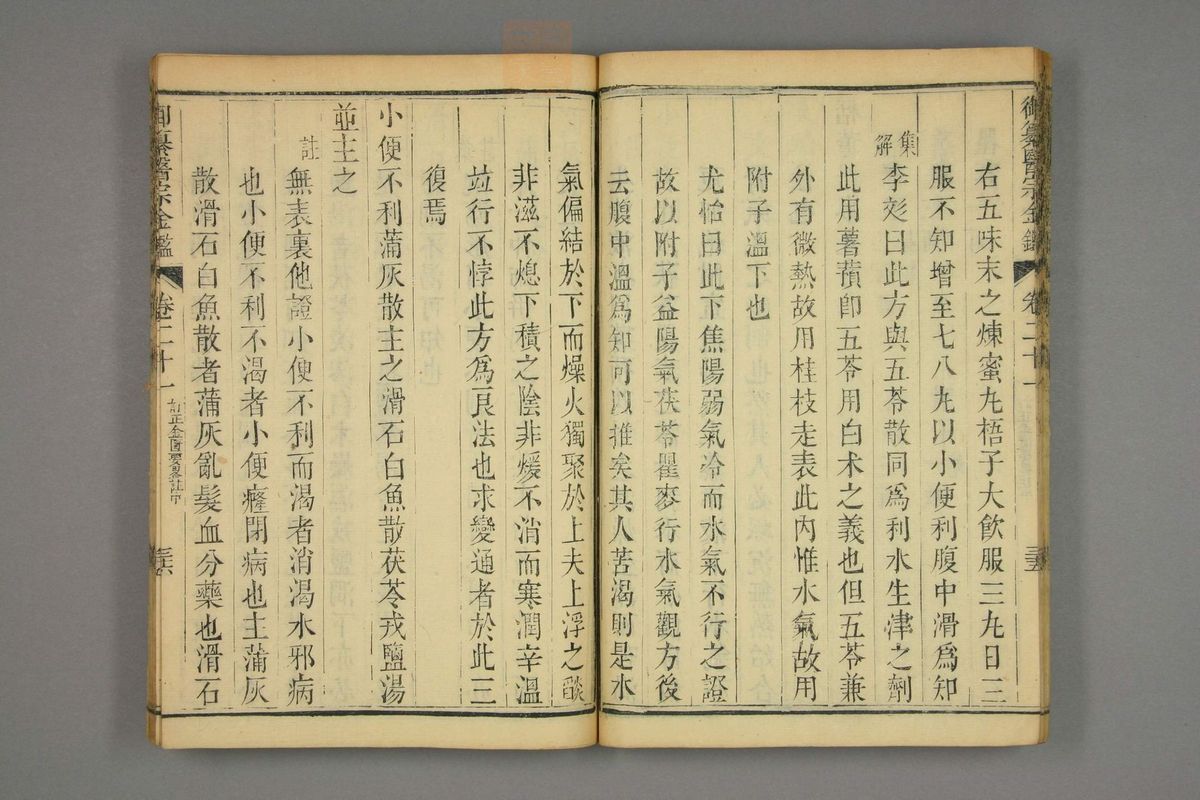 御纂醫宗金鑑 卷二十一 三五
右五味末之煉蜜丸梧子大飲服三丸日三
服不知增至七八丸以小便利腹中溫爲知
集解
李彣曰此方與五苓散同爲利水生津之劑
此用薯蕷卽五苓用白术之義也但五苓兼
外有微熱故用桂枝走表此內惟水氣故用
附子溫下也
尤怡曰此下焦陽弱氣冷而水氣不行之證
故以附子益陽氣茯苓瞿麥行水氣觀方後
云腹中溫爲知可以推矣其人苦渴則是水
氣偏結於下而燥火獨聚於上夫上浮之燄
非滋不熄下積之陰非煖不消而寒潤辛溫
竝行不悖此方爲良法也求變通者於此三
復焉
小便不利蒲灰散主之滑石白魚散茯苓戎鹽湯
並主之
註
無表裏他證小便不利而渴者消渴水邪病
也小便不利不渴者小便癃閉病也主蒲灰
散滑石白魚散者蒲灰亂髮血分藥也滑石
御纂醫宗金鑑 卷二十一 訂正金匱要畧註中 三六